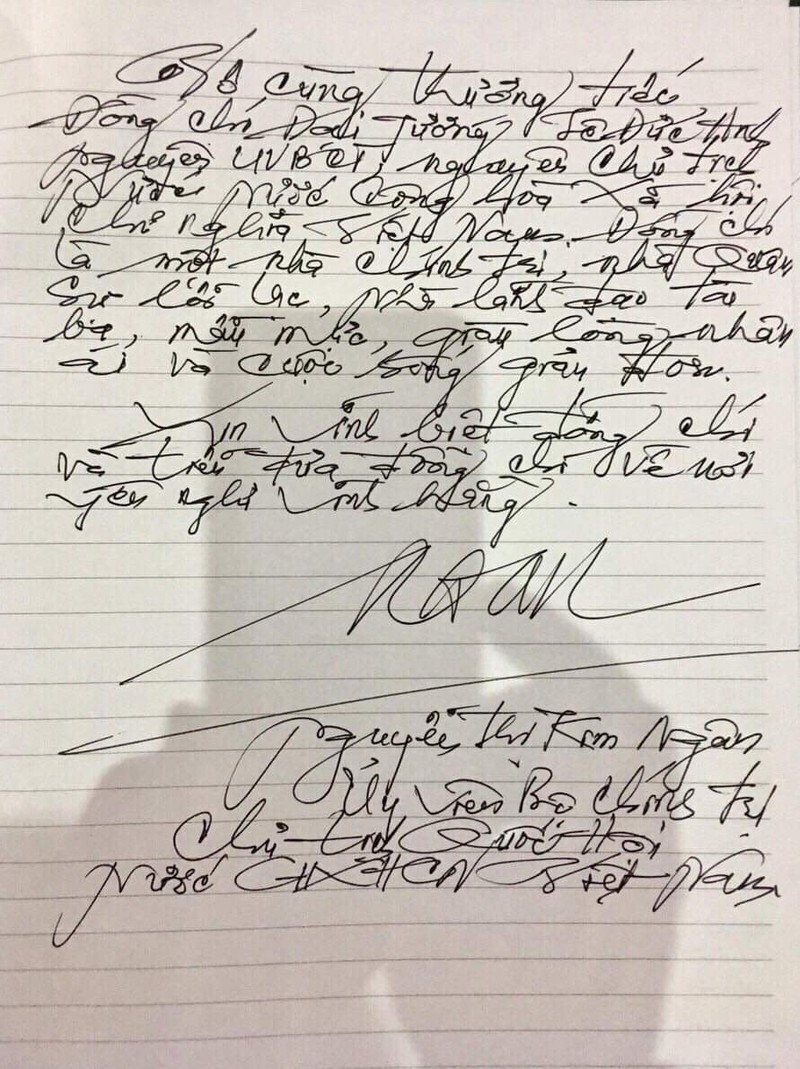 Vô cùng thương tiếc
Đồng chí Đại tướng Lê Đức Anh
nguyên UVBCT, nguyên Chủ tịch
nước Cộng hòa Xã hội
Chủ nghĩa Việt Nam. Đồng chí
là một nhà chính trị, nhà Quân
sự lỗi lạc, nhà lãnh đạo tài
ba, mẫu mực, giàu lòng nhân
ái và cuộc sống giản đơn.
Xin vĩnh biệt đồng chí
và tiễn đưa đồng chí về nơi
yên nghỉ vĩnh hằng.
Nguyễn Thị Kim Ngân
Ủy viên Bộ Chính trị
Chủ tịch Quốc Hội
Nước CHXHCN Việt Nam